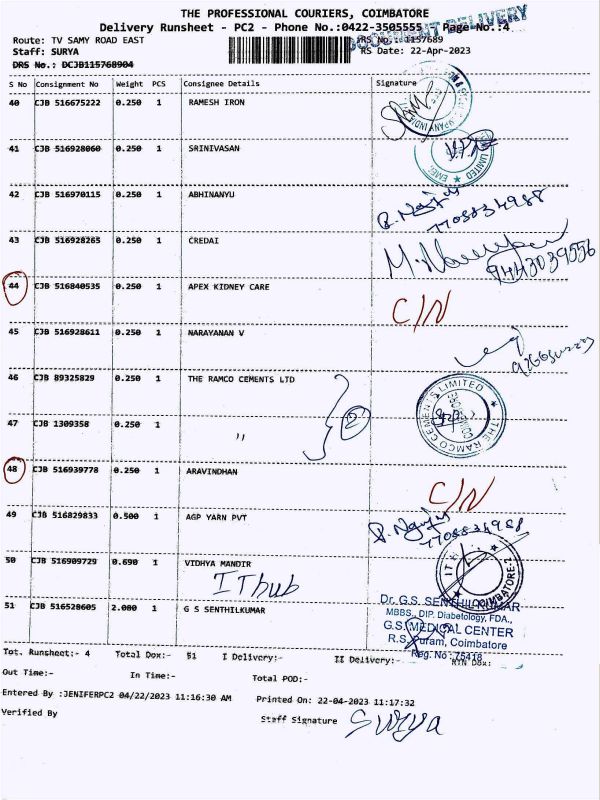 THE PROFESSIONAL COURIERS, COIMBATORE
Delivery Runsheet - PC2 - Phone No.:0422-3505555 Page No.:4
DOCUMENT DELIVERY
Route: TV SAMY ROAD EAST RS No.: I157689
Staff: SURYA RS Date: 22-Apr-2023
DRS No.: DCJB115768904
S No Consignment No Weight PCS Consignee Details Signature
40 CJB 516675222 0.250 1 RAMESH IRON
41 CJB 516928060 0.250 1 SRINIVASAN
LIMITED ★ EME
42 CJB 516970115 0.250 1 ABHINANYU
7708834988
43 CJB 516928265 0.250 1 CREDAI
9443039556
44 CJB 516840535 0.250 1 APEX KIDNEY CARE C/N
45 CJB 516928611 0.250 1 NARAYANAN V
46 CJB 89325829 0.250 1 THE RAMCO CEMENTS LTD
★ THE RAMCO CEMENTS LIMITED
47 CJB 1309358 0.250 1 " 2
48 CJB 516939778 0.250 1 ARAVINDHAN C/N
49 CJB 516829833 0.500 1 AGP YARN PVT
7708834988
50 CJB 516909729 0.690 1 VIDHYA MANDIR
IT hub
COIMBATORE-2
51 CJB 516528605 2.000 1 G S SENTHILKUMAR
Dr. G.S. SENTHILKUMAR
MBBS., DIP. Diabetology, FDA.,
G.S. MEDICAL CENTER
R.S. Puram, Coimbatore
Reg. No : 75418
Tot. Runsheet:- 4 Total Dox:- 51 I Delivery:- II Delivery:- RTN Dox:
Out Time:- In Time:- Total POD:-
Entered By :JENIFERPC2 04/22/2023 11:16:30 AM Printed On: 22-04-2023 11:17:32
Verified By Staff Signature Surya